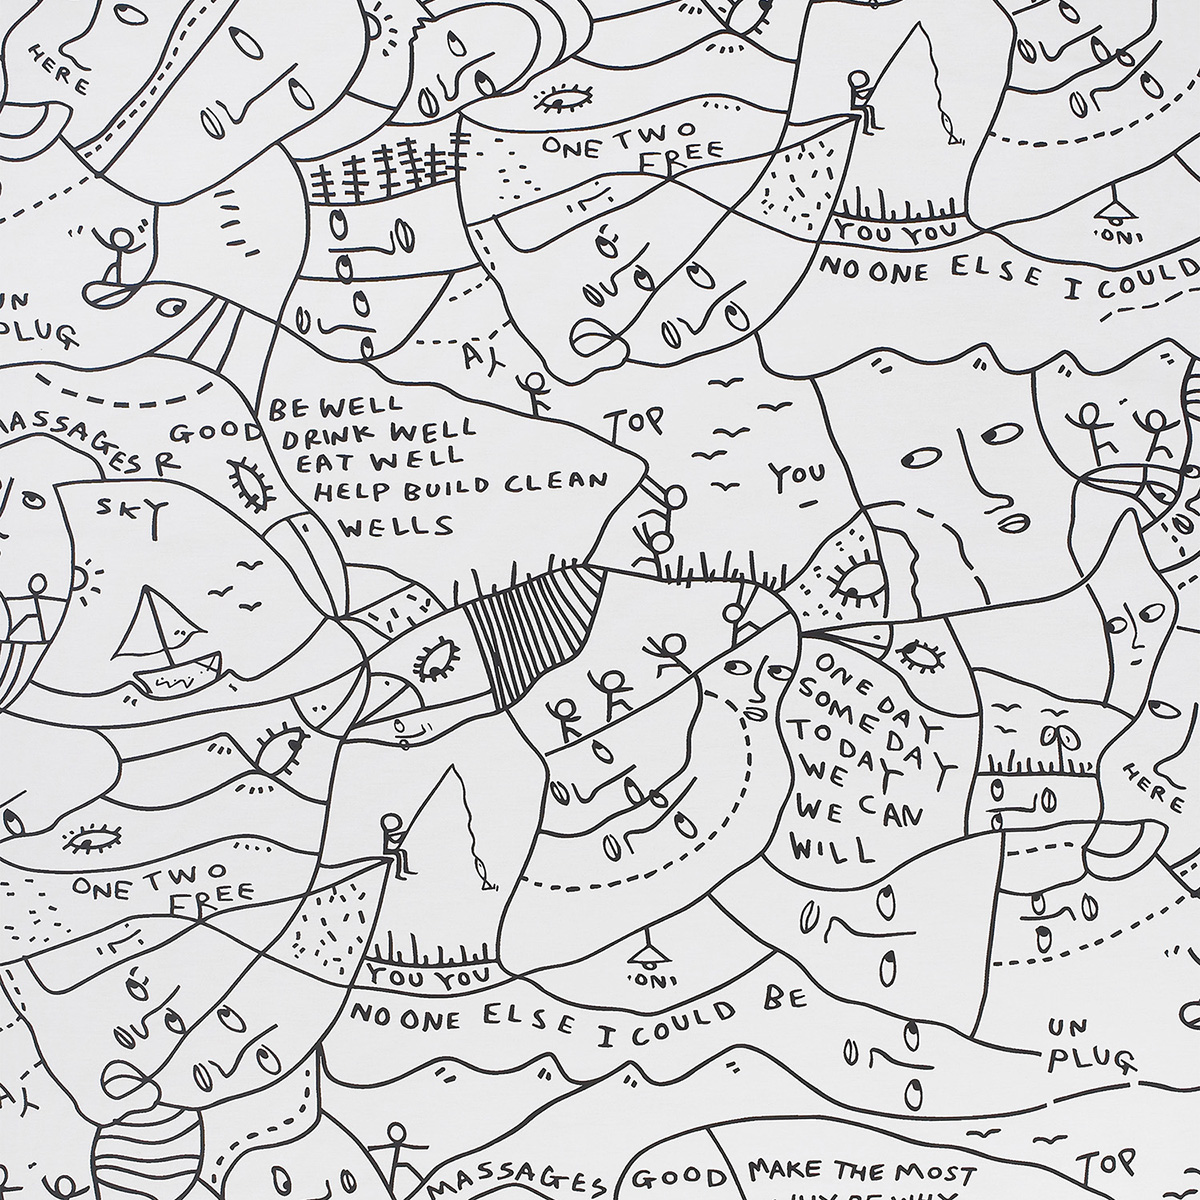 HERE
ONE TWO
FREE
YOU YOU
'ON'
NO ONE ELSE I COULD
UN
PLUG
AY
BE WELL
DRINK WELL
EAT WELL
HELP BUILD CLEAN
WELLS
TOP
YOU
MASSAGES R GOOD
SKY
ONE DAY
SOME DAY
TO DAY
WE CAN
WILL
HERE
ONE TWO
FREE
YOU YOU
'ON'
NO ONE ELSE I COULD BE
UN
PLUG
AY
MASSAGES
GOOD
MAKE THE MOST
TOP